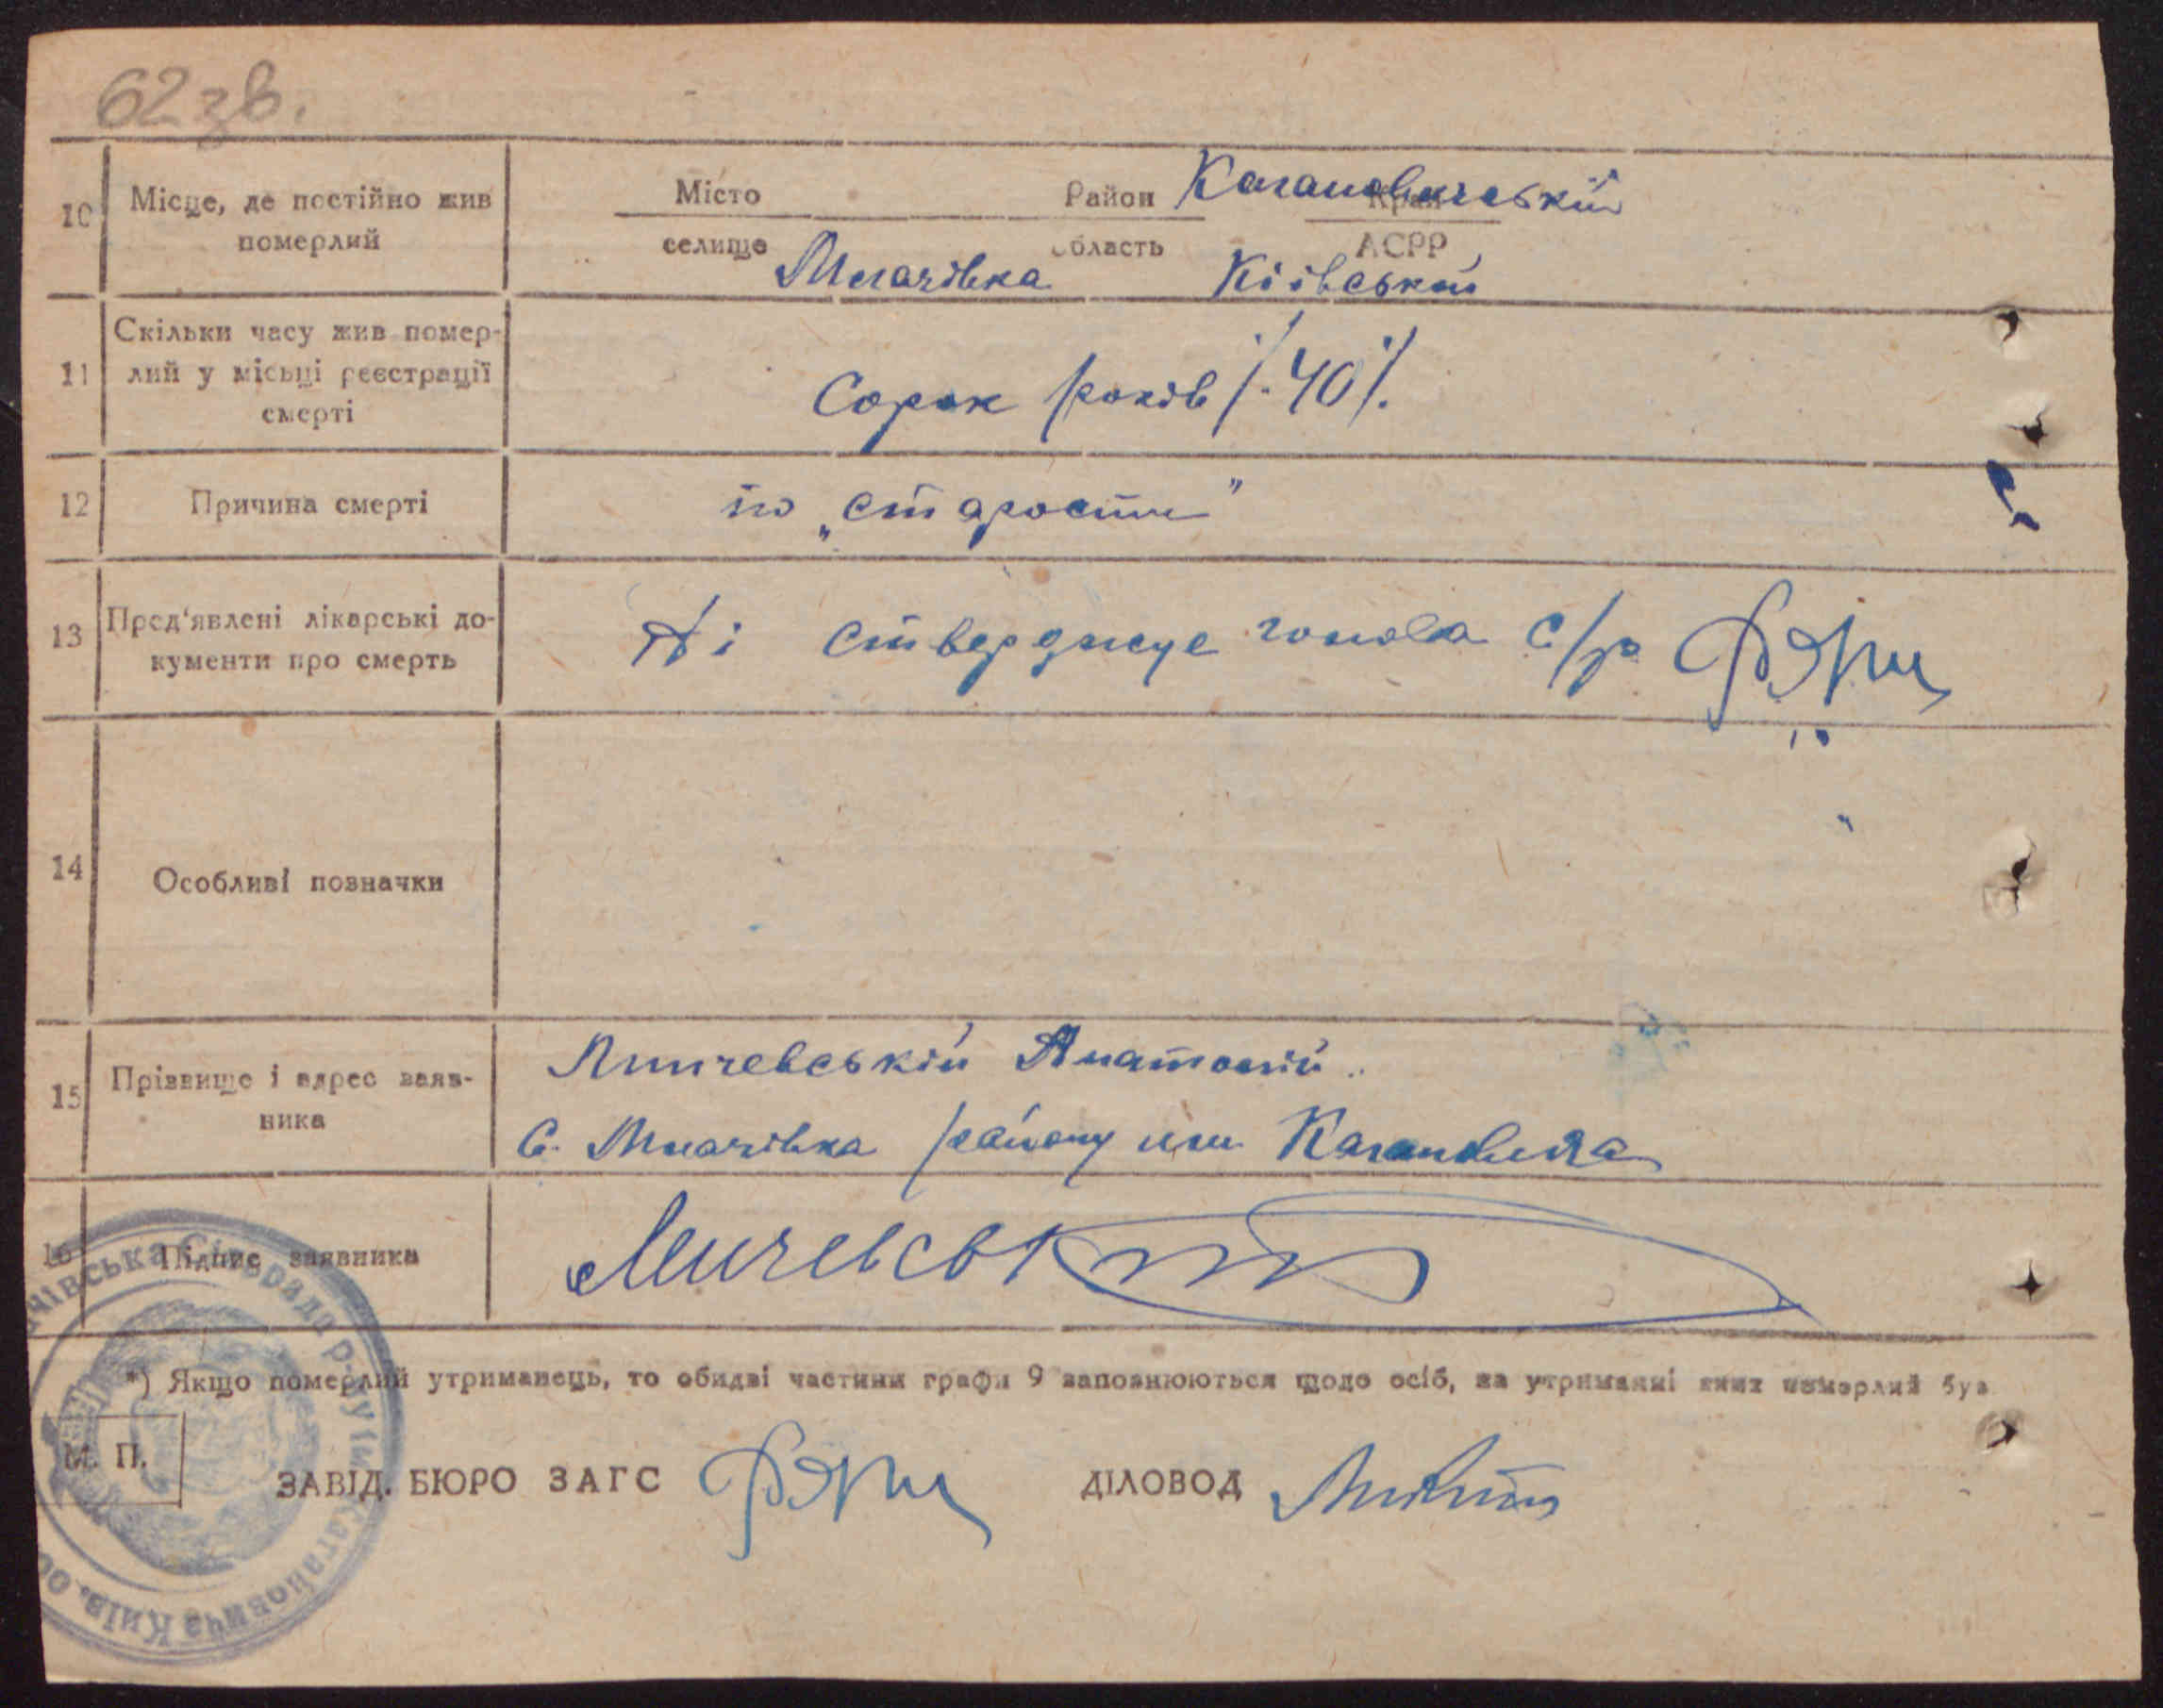 62 зв.
10 Місце, де постійно жив померлий
Місто Район Кагановичський Край
селище Мигачівка область Кіівський АСРР
11 Скільки часу жив помер-
лий у місці реєстрації
смерті
Сорок років /. 40 /.
12 Причина смерті по „старости"
13 Пред'явлені лікарські до-
кументи про смерть
стверджує голова с/р
14 Особливі позначки
15 Прізвище і адрес заяв-
ника
Анатолій
с. району им. Кагановича
16 Підпис заявника
*) Якщо померлий утриманець, то обидві частини графи 9 заповнюються щодо осіб, на утриманні яких померлий був
М. П.
ЗАВІД. БЮРО ЗАГС ДІЛОВОД
чівська Сільрада р-ну ім. Кагановича Київ. об